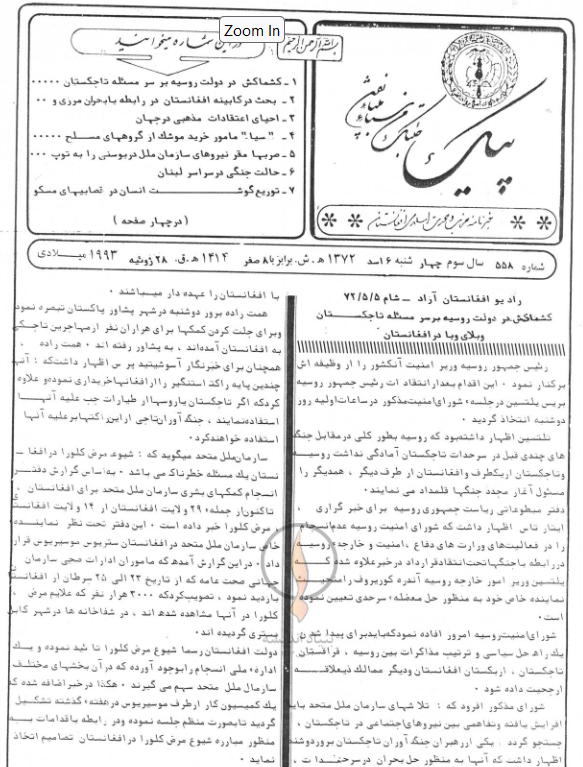 Zoom In
بسم الله الرحمن الرحیم
در این شماره میخوانید
۱ـ کشمکش در دولت روسیه بر سر مسئله تاجکستان ۰۰۰۰۰
۲ـ بحث در کابینه افغانستان در رابطه با بحران مرزی و ۰۰
۳ـ احیای اعتقادات مذهبی در جهان
۴ـ "سیا" مامور خرید موشک از گروههای مسلح ۰۰۰۰۰
۵ـ صربها مقر نیروهای سازمان ملل در بوسنی را به توپ ۰۰۰
۶ـ حالت جنگی در سراسر لبنان
۷ـ توزیع گوشت انسان در قصابیهای مسکو
(در چهار صفحه)
پیک
شماره ۵۵۸ سال سوم چهارشنبه ۶ اسد ۱۳۷۲ هـ.ش. برابر با ۸ صفر ۱۴۱۴ هـ.ق. ۲۸ ژوئیه ۱۹۹۳ میلادی
رادیو افغانستان آزاد ـ شام ۷۲/۵/۵
کشمکش در دولت روسیه بر سر مسئله تاجکستان
رئیس جمهور روسیه وزیر امنیت آنکشور را از وظیفه اش
برکنار نمود ۰ این اقدام بعد از انتقادات رئیس جمهور روسیه
بریس یلتسین در جلسه شورای امنیت مذکور در ساعات اولیه روز
دوشنبه اتخاذ گردید ۰
یلتسین اظهار داشته بود که روسیه بطور کلی در مقابل جنگ
های چندی قبل در سرحدات تاجکستان آمادگی نداشت روسیه
وتاجکستان از یکطرف و افغانستان از طرف دیگر ، همدیگر را
مسئول آغاز مجدد جنگها قلمداد می نمایند۰
دفتر مطبوعاتی ریاست جمهوری روسیه برای خبر گزاری
ایتار تاس اظهار داشت که شورای امنیت روسیه عدم انسجام
را در فعالیتهای وزارت های دفاع ، امنیت و خارجه روسیه
در رابطه با جنگها تحت انتقاد قرار داد در خبر علاوه شده که
یلتسین وزیر امور خارجه روسیه آندره کوزیروف را منحیث
نماینده خاص خود به منظور حل معضله سرحدی تعیین نموده
است ۰
شورای امنیت روسیه امروز افاده نمود که باید برای پیدا شدن
یک راه حل سیاسی و ترتیب مذاکرات بین روسیه ، قزاقستان
تاجکستان ، ازبکستان افغانستان و دیگر ممالک ذیعلاقه
ارجحیت داده شود ۰
شورای مذکور افزود که : تلاشهای سازمان ملل متحد باید
افزایش یافته وتفاهمی بین نیروهای اجتماعی در تاجکستان ،
جستجو گردد ۰ یکی از رهبران جنگ آوران تاجکستان بروز دوشنبه
اظهار داشت که آنها به منظور حل بحران در سرحدات ،
با افغانستان را عهده دار میباشند ۰
همت زاده بروز دوشنبه در شهر پشاور پاکستان تبصره نمود
و برای جلب کردن کمکها برای هزاران نفر از مهاجرین تاجکی
به افغانستان آمده اند ، به پشاور رفته اند ۰ همت زاده
همچنان برای خبرنگار آسوشیتید پرس اظهار داشت که : آنها
چندین پایه راکت استنگر را از افغانها خریداری نموده و علاوه
کرد که اگر تاجکستان یا روسها از طیارات جب علیه آنها
استفاده نمایند ، جنگ آوران تاجی از این راکتها بر علیه آنها
استفاده خواهند کرد ۰
سازمان ملل متحد میگوید که : شیوع مرض کلورا در افغا ـ
نستان یک مسئله خطرناک می باشد ۰ به اساس گزارش دفتر
انسجام کمکهای بشری سازمان ملل متحد برای افغانستان ،
تاکنون از جمله ۲۹ ولایت افغانستان از ۱۴ ولایت افغانستا
ن مرض کلورا خبر داده است ۰ این دفتر تحت نظر نماینده
خاص سازمان ملل متحد در افغانستان ستریوس موسیریوس قرار
داد ۰ در این گزارش آمده که ماموران ادارات صحی سازمان
جهانی صحت عامه که از تاریخ ۲۳ الی ۲۵ سرطان از افغانستا
بازدید نمود ، تصویب کرد که ۳۰۰۰ هزار نفر که علایم مرض
کلورا در آنها مشاهده شده اند ، در شفاخانه ها در شهر کابل
بستری گردیده اند ۰
دولت افغانستان رسما شیوع مرض کلورا تائید نموده و یک
اداره ملی انسجام را بوجود آورده که در آن بخشهای مختلف
سازمان ملل متحد سهم می گیرند ۰ هکذا در خبر اضافه شده که
یک کمیسیون کار از طرف موسیریوس در هفته گذشته تشکیل
گردید تا بصورت منظم جلسه نموده و در رابطه با اقدامات به
منظور مبارزه شیوع مرض کلورا در افغانستان تصامیم اتخاذ
نماید ۰